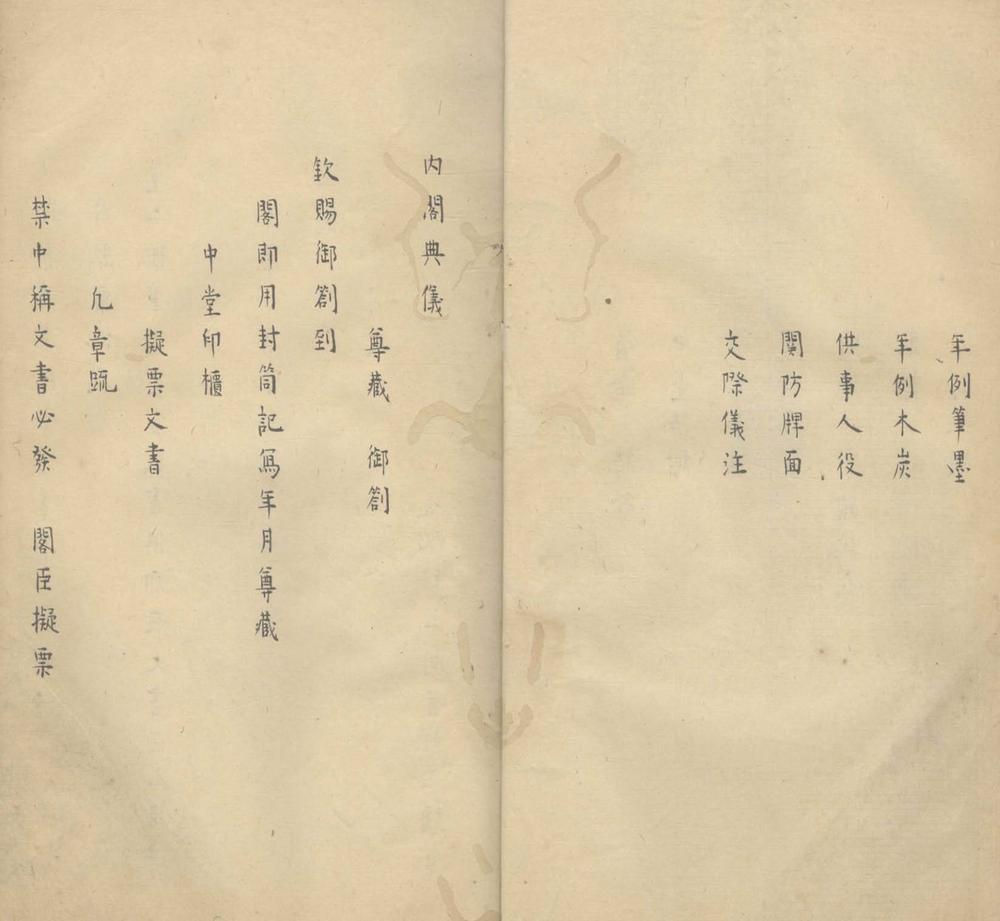 年例筆墨
年例木炭
供事人役
関防牌面
交際儀注
内閣典儀
尊藏　御劄
欽賜御劄到
閣即用封筒記寫年月尊藏
中堂印櫃
擬票文書
凢章䟽
禁中稱文書必發　閣臣擬票